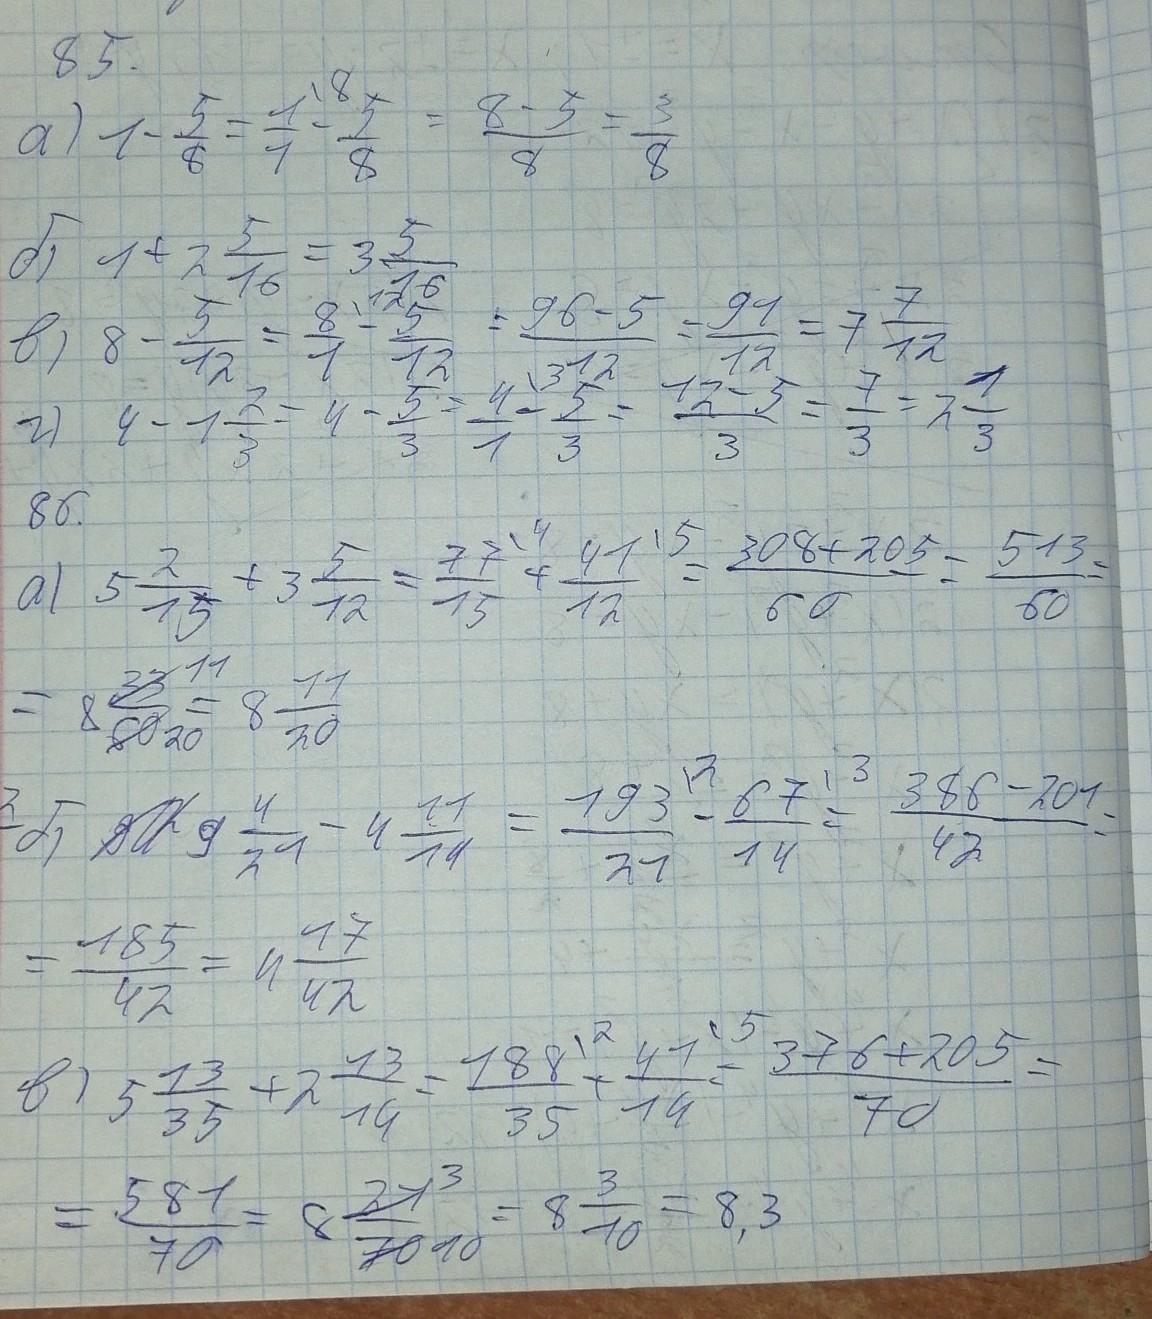 85.
а) 1 - 5/8 = 1/1 \8 - 5/8 = (8-5)/8 = 3/8
б) 1 + 2 5/16 = 3 5/16
в) 8 - 5/12 = 8/1 \12 - 5/12 = (96-5)/12 = 91/12 = 7 7/12
г) 4 - 1 2/3 = 4 - 5/3 = 4/1 \3 - 5/3 = (12-5)/3 = 7/3 = 2 1/3
86.
а) 5 2/15 + 3 5/12 = 77/15 \4 + 41/12 \5 = (308+205)/60 = 513/60 =
= 8 33/60 11/20 = 8 11/20
б) 9 4/21 - 4 11/14 = 193/21 \2 - 67/14 \3 = (386-201)/42 =
= 185/42 = 4 17/42
в) 5 13/35 + 2 13/14 = 188/35 \2 + 41/14 \5 = (376+205)/70 =
= 581/70 = 8 21/70 3/10 = 8 3/10 = 8,3